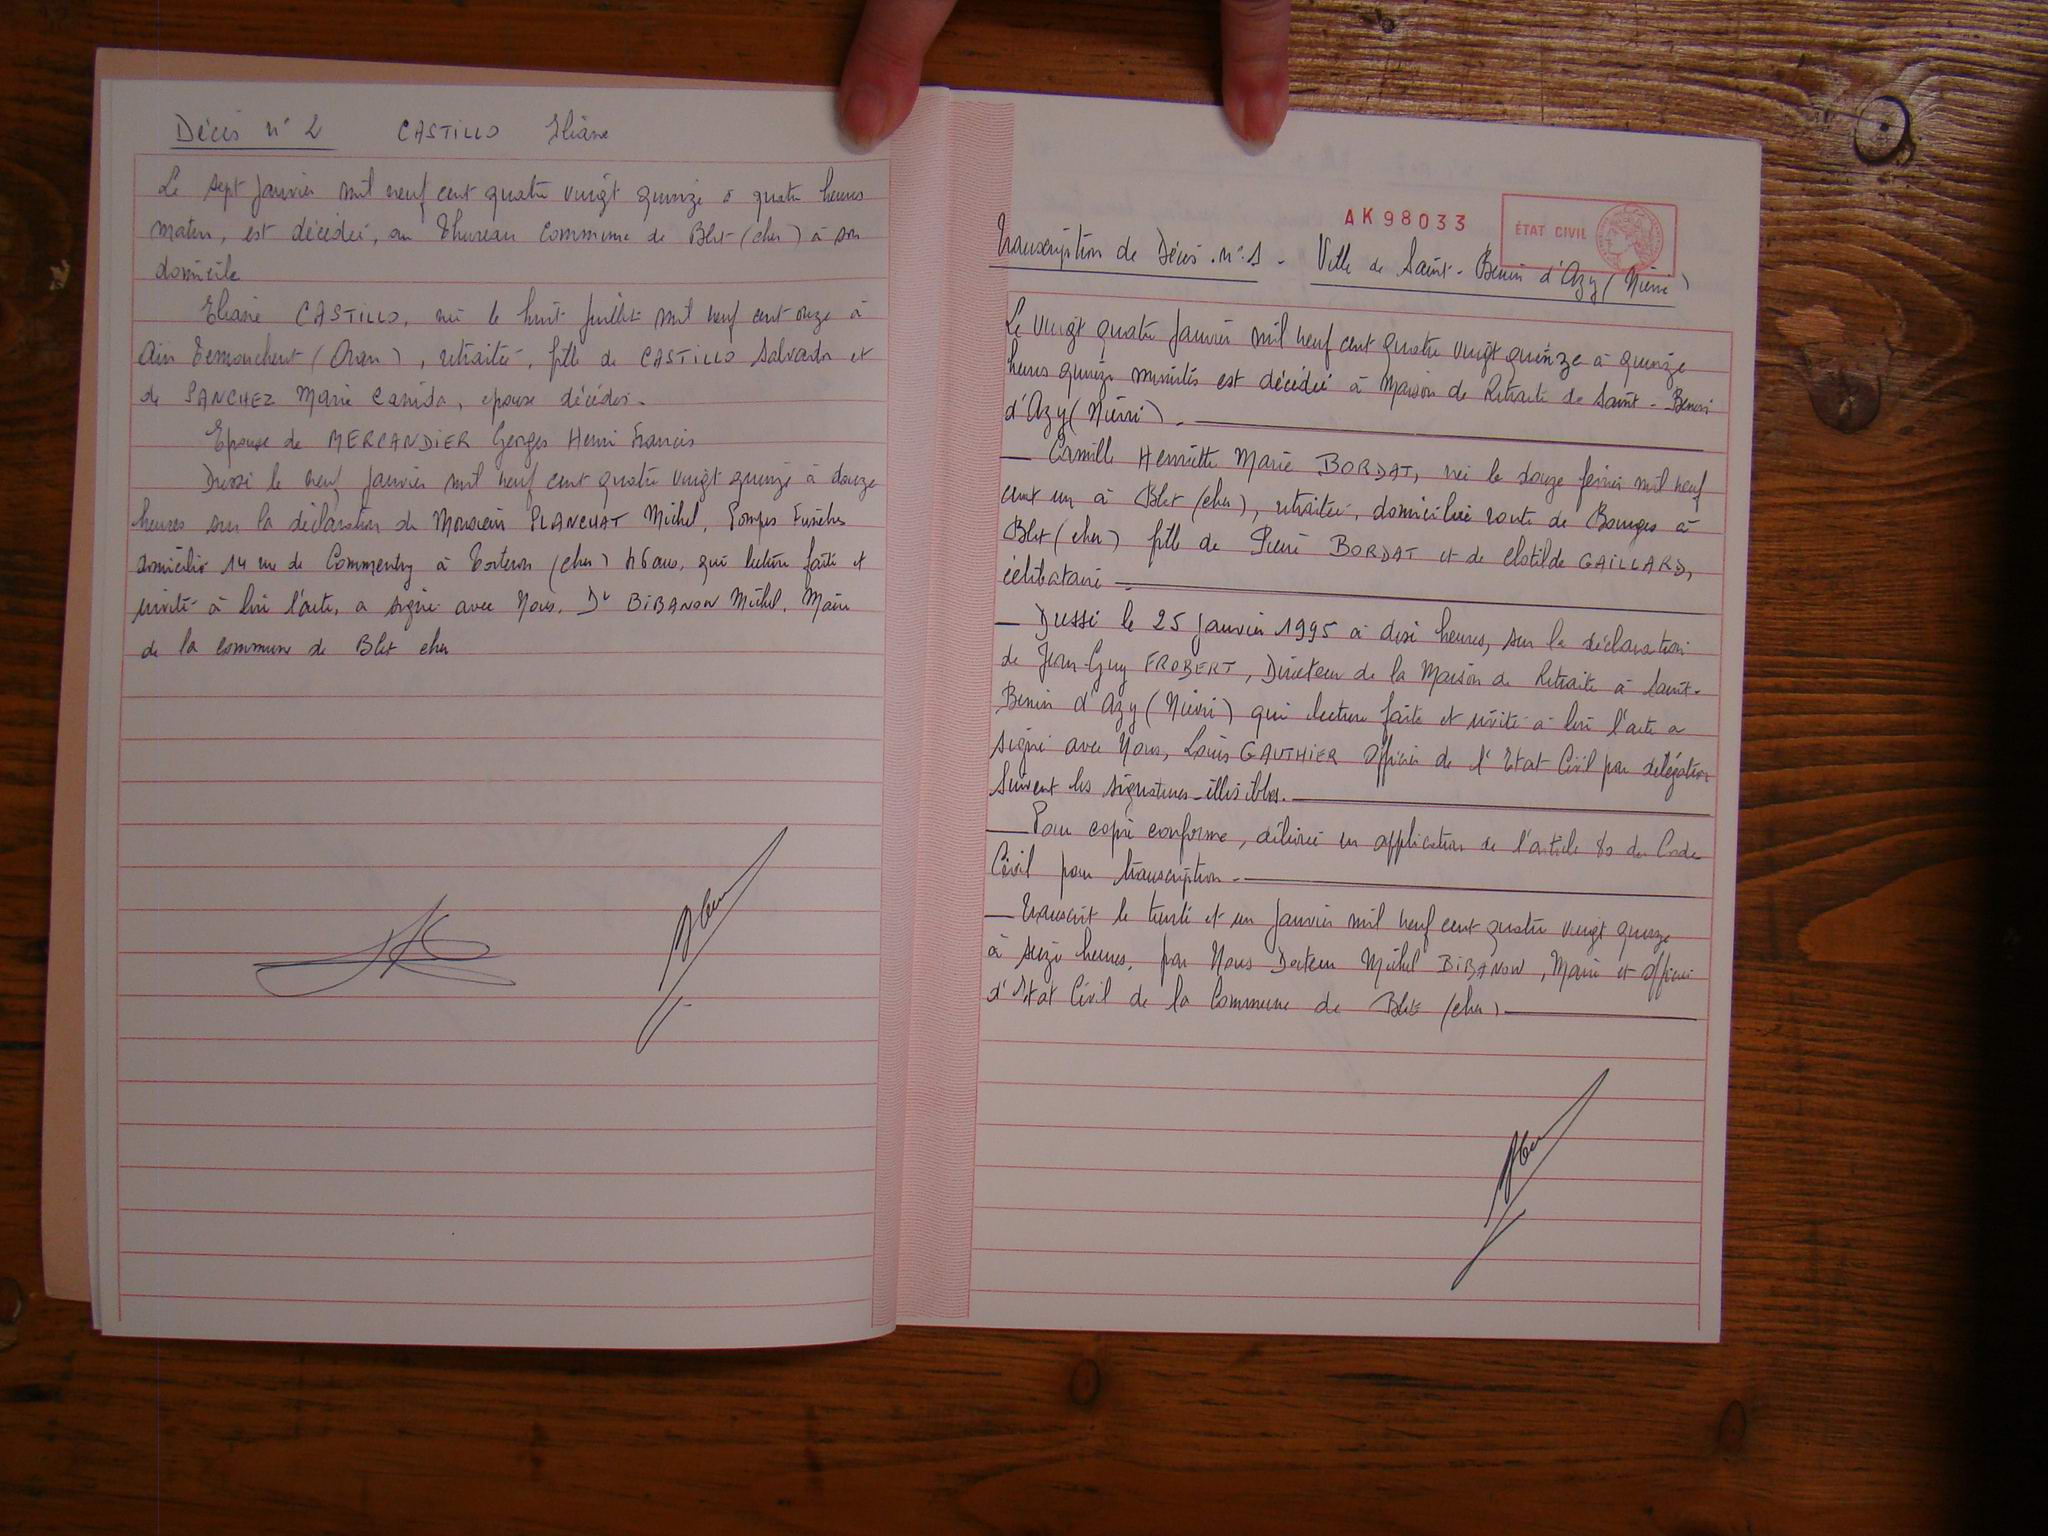 Décès n° 2 CASTILLO Eliane
Le sept Janvier mil neuf cent quatre vingt quinze à quatre heures
matin, est décédée, au Thureau Commune de Blet (cher) à son
domicile
Eliane CASTILLO, née le huit Juillet mil neuf cent onze à
Ain Temouchent (Oran), retraitée, fille de CASTILLO Salvador et
de SANCHEZ Marie Canida, époux décédés.
Epouse de MERCANDIER Georges Henri Francis
Dressé le neuf Janvier mil neuf cent quatre vingt quinze à douze
heures sur la déclaration de Monsieur PLANCHAT Michel, Pompes Funèbres
domicilié 14 rue de Commentry à Torteron (cher) 46 ans, qui lecture faite et
invité à lire l'acte, a signé avec Nous, Dr BIBANOW Michel, Maire
de la commune de Blet cher
AK98033
ÉTAT CIVIL
Transcription de Décès n°1 - Ville de Saint-Benin d'Azy (Nièvre)
Le vingt quatre Janvier mil neuf cent quatre vingt quinze à quinze
heures quinze minutes est décédée à Maison de Retraite de Saint-Benin
d'Azy (Nièvre).
Camille Henriette Marie BORDAT, née le douze février mil neuf
cent un à Blet (cher), retraitée, domiciliée route de Bourges à
Blet (cher) fille de Pierre BORDAT et de Clotilde GAILLARD,
célibataire
Dressé le 25 Janvier 1995 à dix heures, sur la déclaration
de Jean-Guy FROBERT, Directeur de la Maison de Retraite à Saint-
Benin d'Azy (Nièvre) qui lecture faite et invité à lire l'acte a
signé avec Nous, Louis GAUTHIER Officier de l'Etat Civil par délégation
Suivent les signatures illisibles.
Pour copie conforme, délivrée en application de l'article 80 du Code
Civil pour transcription.
Transcrit le trente et un Janvier mil neuf cent quatre vingt quinze
à seize heures, par Nous Docteur Michel BIBANOW, Maire et Officier
d'Etat Civil de la Commune de Blet (cher)